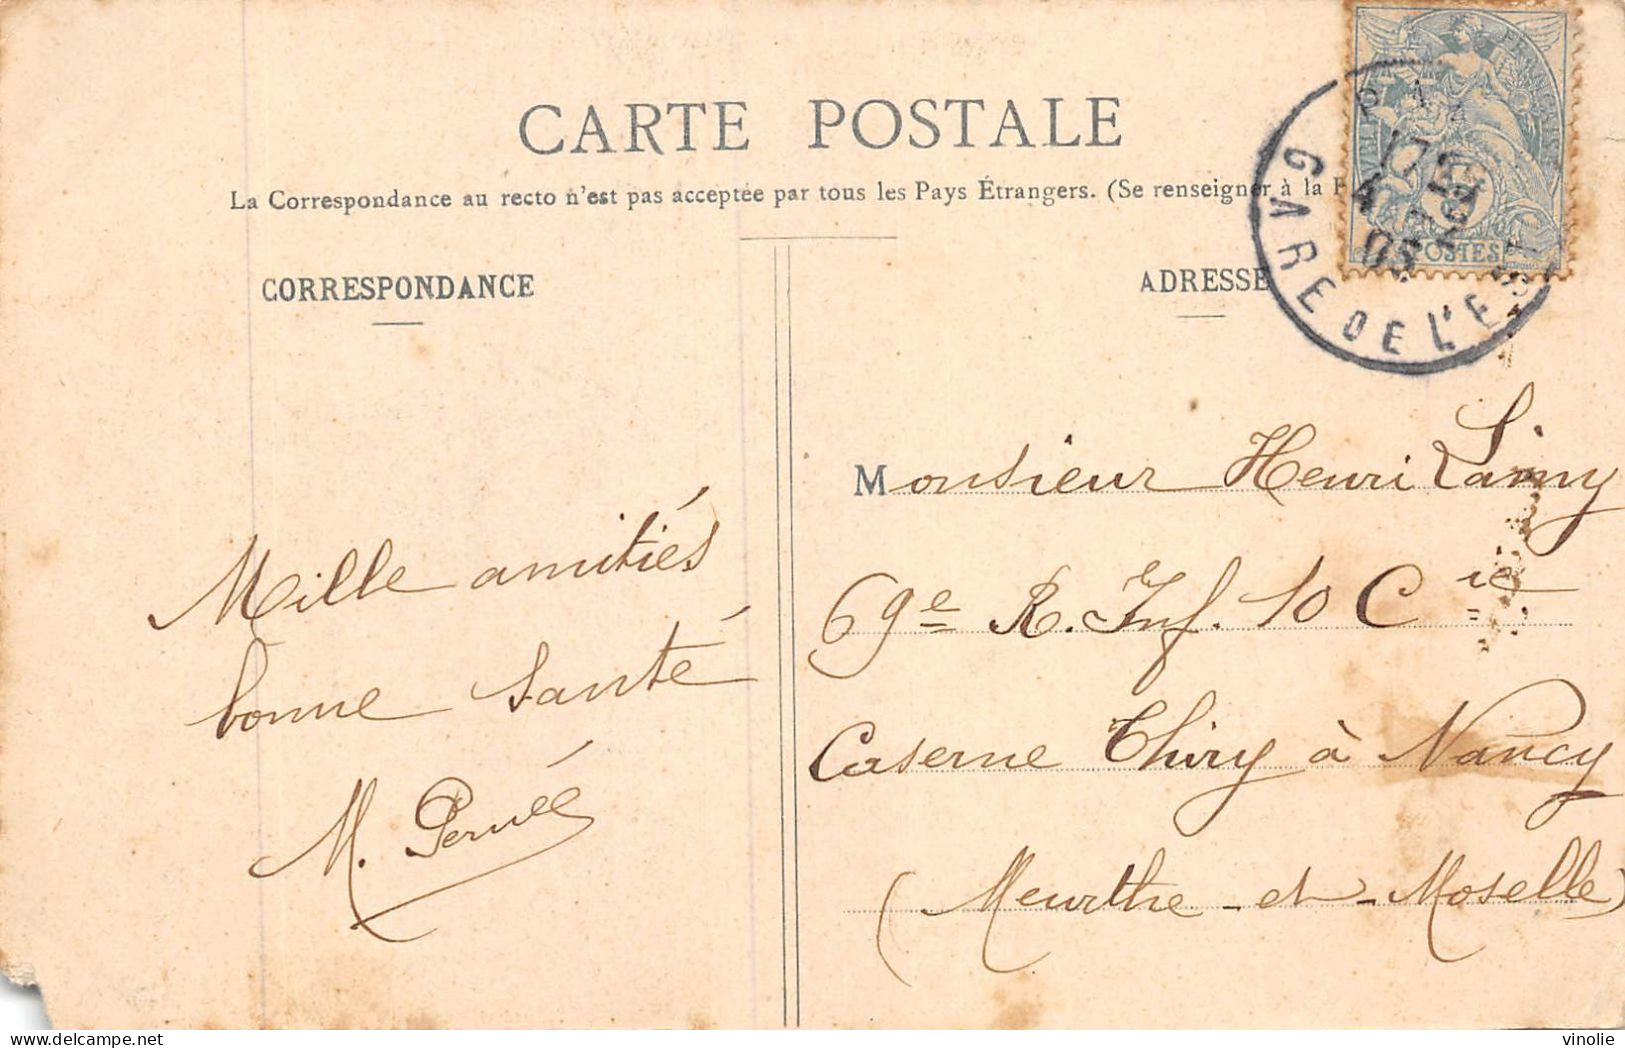 CARTE POSTALE
La Correspondance au recto n'est pas acceptée par tous les Pays Étrangers. (Se renseigner à la
CORRESPONDANCE
ADRESSE
GARE DE L'EST
POSTES
Mille amitiés
bonne santé
M. Pernée
Monsieur Henri Lamy
69e R. Inf. 10 Cie
Caserne Thiry à Nancy
(Meurthe-et-Moselle)
vinolie